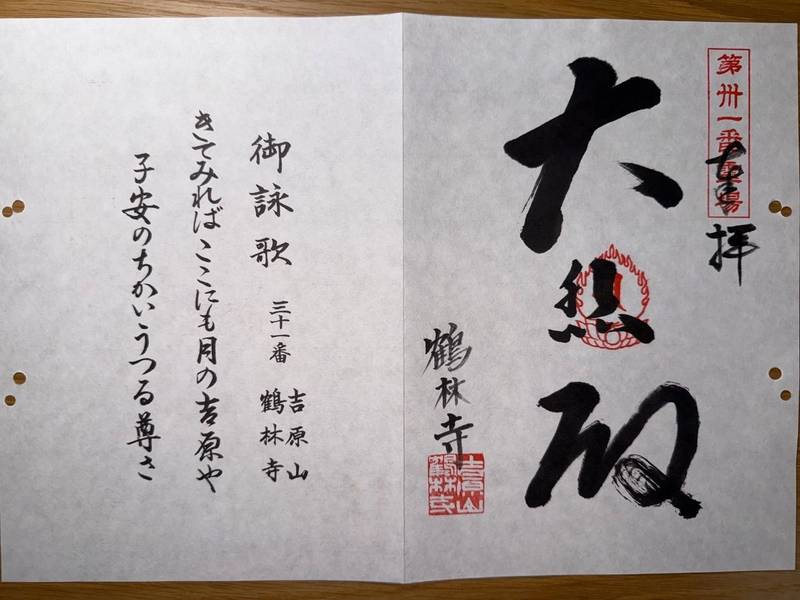 第卅一番霊場
奉拝
大悲殿
鶴林寺
吉原山
鶴林寺
御詠歌
三十一番 吉原山
鶴林寺
きてみれば ここにも月の吉原や
子安のちかい うつる尊さ